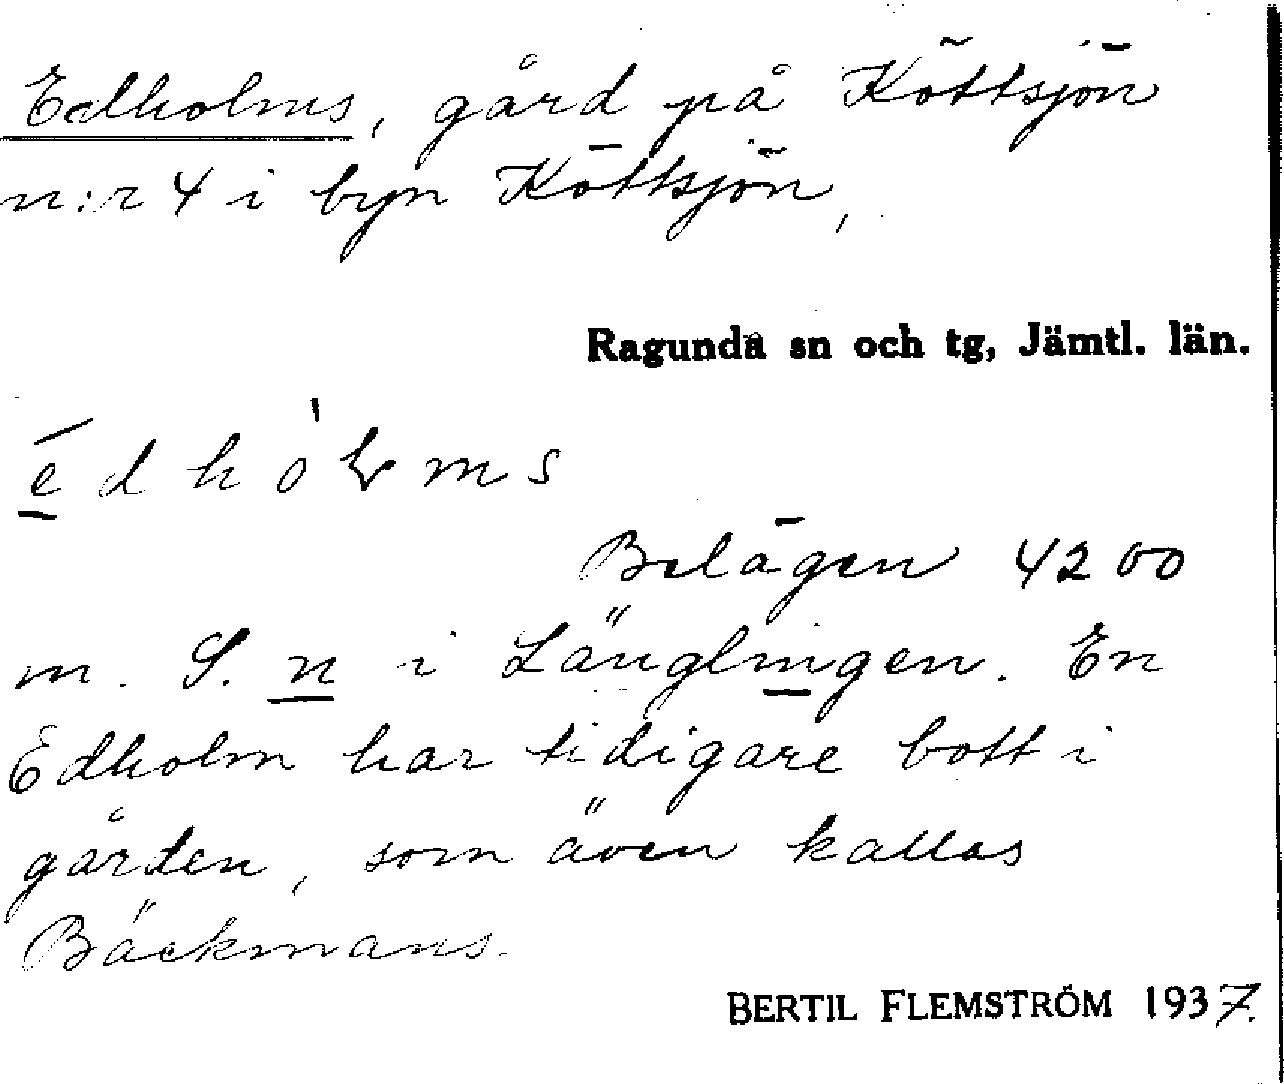 Edholms, gård på Köttsjön
n:r 4 i byn Köttsjön,
Ragunda sn och tg, Jämtl. län.
Belägen 4200
m. S. n i Länglingen. En
Edholm har tidigare bott i
gården, som även kallas
Bäckmans.
BERTIL FLEMSTRÖM 1937.